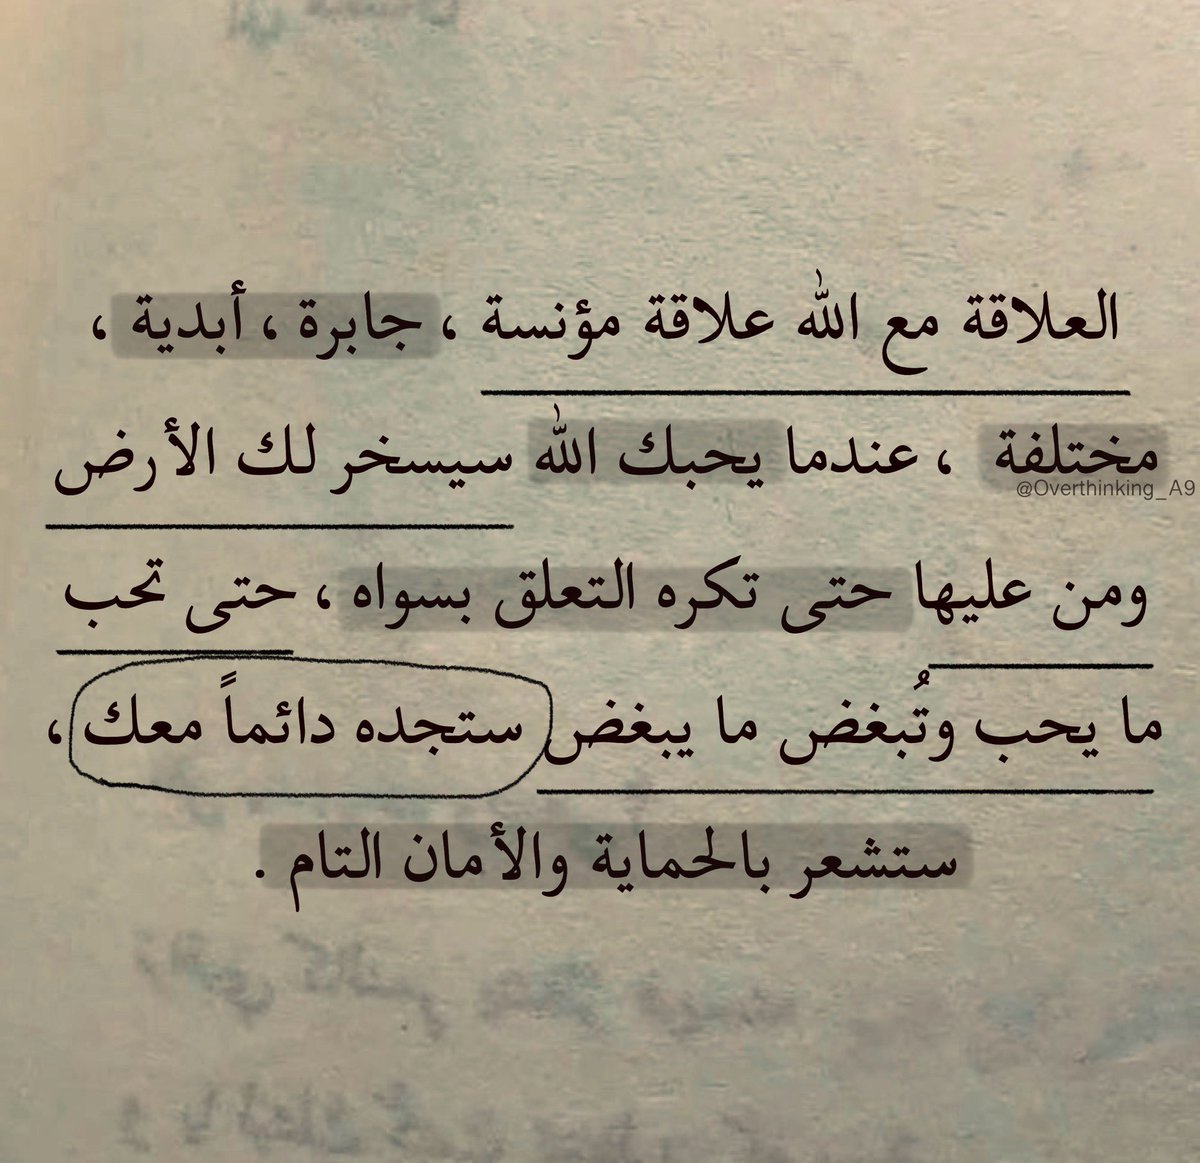 العلاقة مع الله علاقة مؤنسة ، جابرة ، أبدية ،
مختلفة ، عندما يحبك الله سيسخر لك الأرض
@Overthinking_A9
ومن عليها حتى تكره التعلق بسواه ، حتى تحب
ما يحب وتُبغض ما يبغض ستجده دائماً معك ،
ستشعر بالحماية والأمان التام .